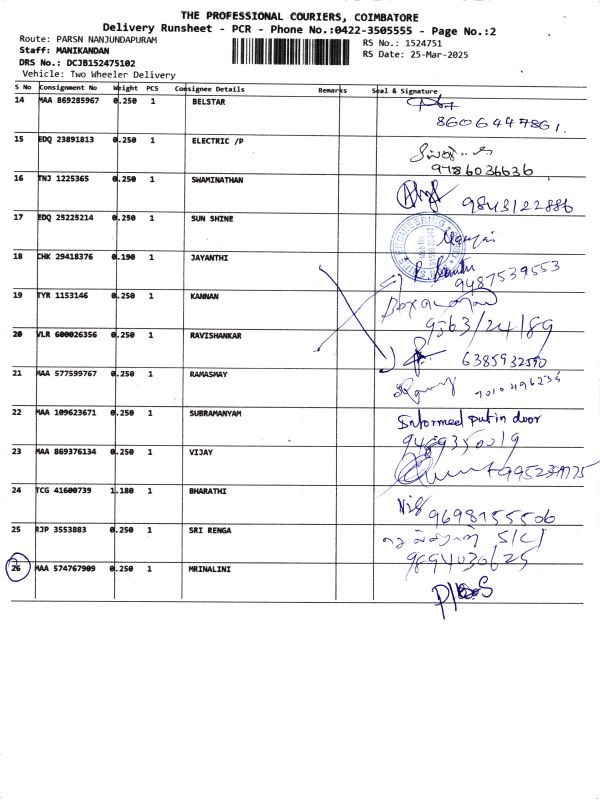 THE PROFESSIONAL COURIERS, COIMBATORE
Delivery Runsheet - PCR - Phone No.:0422-3505555 - Page No.:2
Route: PARSN NANJUNDAPURAM
RS No.: 1524751
Staff: MANIKANDAN
RS Date: 25-Mar-2025
DRS No.: DCJB152475102
Vehicle: Two Wheeler Delivery
S No Consignment No Weight PCS Consignee Details Remarks Seal & Signature
14 MAA 869285967 0.250 1 BELSTAR
8606447861.
15 EDQ 23891813 0.250 1 ELECTRIC /P
9786036636
16 TNJ 1225365 0.250 1 SWAMINATHAN
9843122886
17 EDQ 25225214 0.250 1 SUN SHINE
18 CHK 29418376 0.190 1 JAYANTHI
9487539553
19 TYR 1153146 0.250 1 KANNAN
9363124189
20 VLR 600026356 0.250 1 RAVISHANKAR
6385932590
21 MAA 577599767 0.250 1 RAMASMAY
7010496235
22 MAA 109623671 0.250 1 SUBRAMANYAM
Informed put in door
9489350019
23 MAA 869376134 0.250 1 VIJAY
24 TCG 41600739 1.180 1 BHARATHI
9698155506
25 RJP 3553883 0.250 1 SRI RENGA
9894030625
26 MAA 574767909 0.250 1 MRINALINI